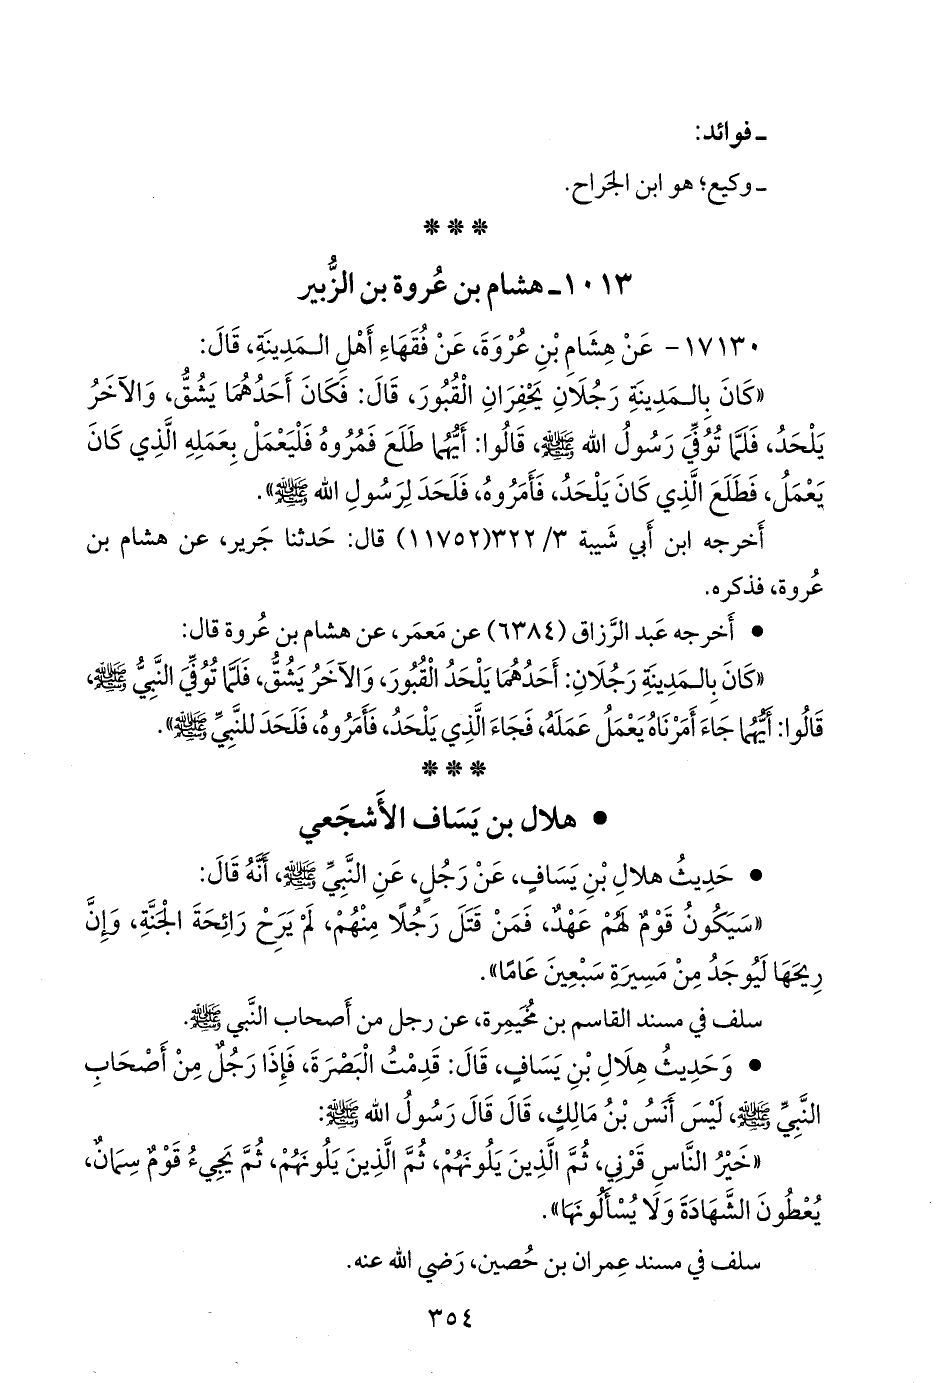 ـ فوائد:
ـ وكيع؛ هو ابن الجَراح.
* * *
١٠١٣ـ هشام بن عُروة بن الزُّبير
١٧١٣٠- عَنْ هِشَامِ بْنِ عُرْوَةَ، عَنْ فُقَهَاءِ أَهْلِ الـمَدِينَةِ، قَالَ:
«كَانَ بِالـمَدِينَةِ رَجُلَانِ يَحْفِرَانِ الْقُبُورَ، قَالَ: فَكَانَ أَحَدُهُمَا يَشُقُّ، وَالآخَرُ
يَلْحَدُ، فَلَمَّا تُوُفِّيَ رَسُولُ الله ﷺ، قَالُوا: أَيُّهُما طَلَعَ فَمُرُوهُ فَلْيَعْمَلْ بِعَمَلِهِ الَّذِي كَانَ
يَعْمَلُ، فَطَلَعَ الَّذِي كَانَ يَلْحَدُ، فَأَمَرُوهُ، فَلَحَدَ لِرَسُولِ الله ﷺ».
أَخرجه ابن أبي شَيبة ٣/ ٣٢٢(١١٧٥٢) قال: حَدثنا جَرير، عن هشام بن
عُروة، فذكره.
• أَخرجه عَبد الرَّزاق (٦٣٨٤) عن مَعمَر، عن هشام بن عُروة قال:
«كَانَ بِالـمَدِينَةِ رَجُلَانِ: أَحَدُهُمَا يَلْحَدُ الْقُبُورَ، وَالآخَرُ يَشُقُّ، فَلَمَّا تُوُفِّيَ النَّبِيُّ ﷺ،
قَالُوا: أَيُّهُما جَاءَ أَمَرْنَاهُ يَعْمَلُ عَمَلَهُ، فَجَاءَ الَّذِي يَلْحَدُ، فَأَمَرُوهُ، فَلَحَدَ للنَّبِيِّ ﷺ».
* * *
• هلال بن يَسَاف الأَشجَعي
• حَدِيثُ هلالِ بْنِ يَسَافٍ، عَنْ رَجُلٍ، عَنِ النَّبِيِّ ﷺ، أَنَّهُ قَالَ:
«سَيَكُونُ قَوْمٌ لَهُمْ عَهْدٌ، فَمَنْ قَتَلَ رَجُلًا مِنْهُمْ، لَمْ يَرَحْ رَائِحَةَ الْجَنَّةِ، وَإِنَّ
رِيحَهَا لَيُوجَدُ مِنْ مَسِيرَةِ سَبْعِينَ عَامًا».
سلف في مسند القاسم بن مُخَيمِرة، عن رجل من أَصحاب النَّبي ﷺ.
• وَحَدِيثُ هِلَالِ بْنِ يَسَافٍ، قَالَ: قَدِمْتُ الْبَصْرَةَ، فَإِذَا رَجُلٌ مِنْ أَصْحَابِ
النَّبِيِّ ﷺ، لَيْسَ أَنَسُ بْنُ مَالِكٍ، قَالَ قَالَ رَسُولُ الله ﷺ:
«خَيْرُ النَّاسِ قَرْنِي، ثُمَّ الَّذِينَ يَلُونَهُمْ، ثُمَّ الَّذِينَ يَلُونَهُمْ، ثُمَّ يَجِيءُ قَوْمٌ سِمَانٌ،
يُعْطُونَ الشَّهَادَةَ وَلَا يُسْأَلُونَهَا».
سلف في مسند عِمران بن حُصين، رَضي الله عنه.
٣٥٤